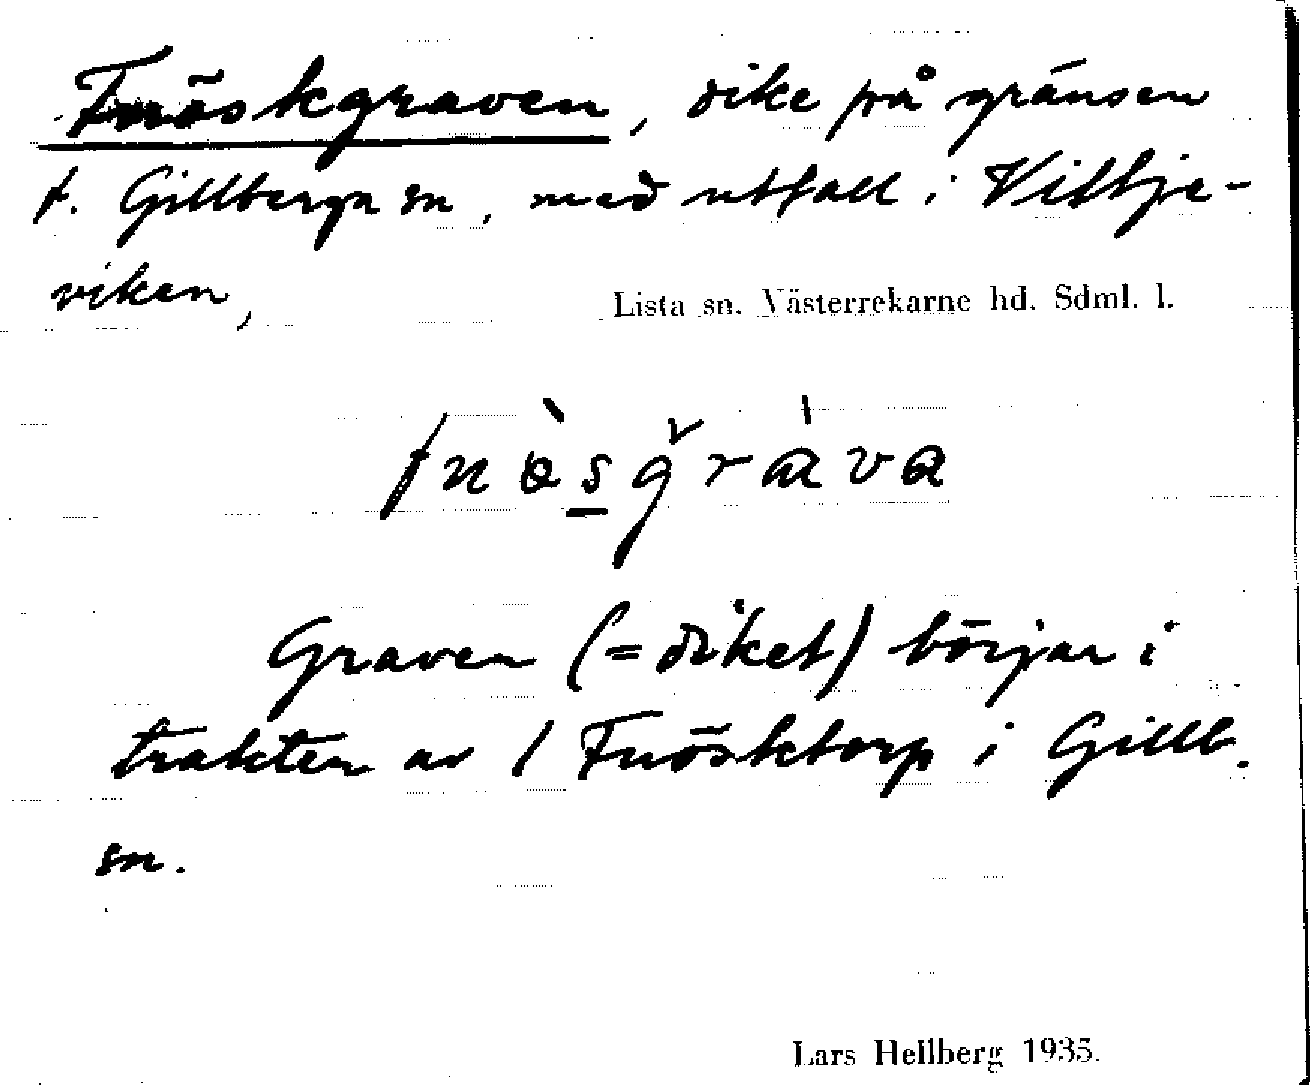 Fnöskgraven, dike på gränsen
t. Gillberga sn, med utfall i Vilbje-
viken,
Lista sn. Västerrekarne hd. Sdml. l.
Graven (= diket) börjar i
trakten av / Fnösktorp i Gillb.
sn.
Lars Hellberg 1935.